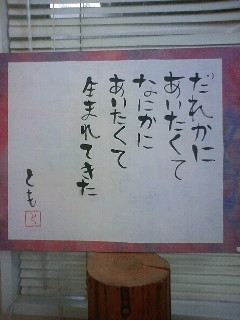 だれかに
あいたくて
なにかに
あいたくて
生まれてきた
とも